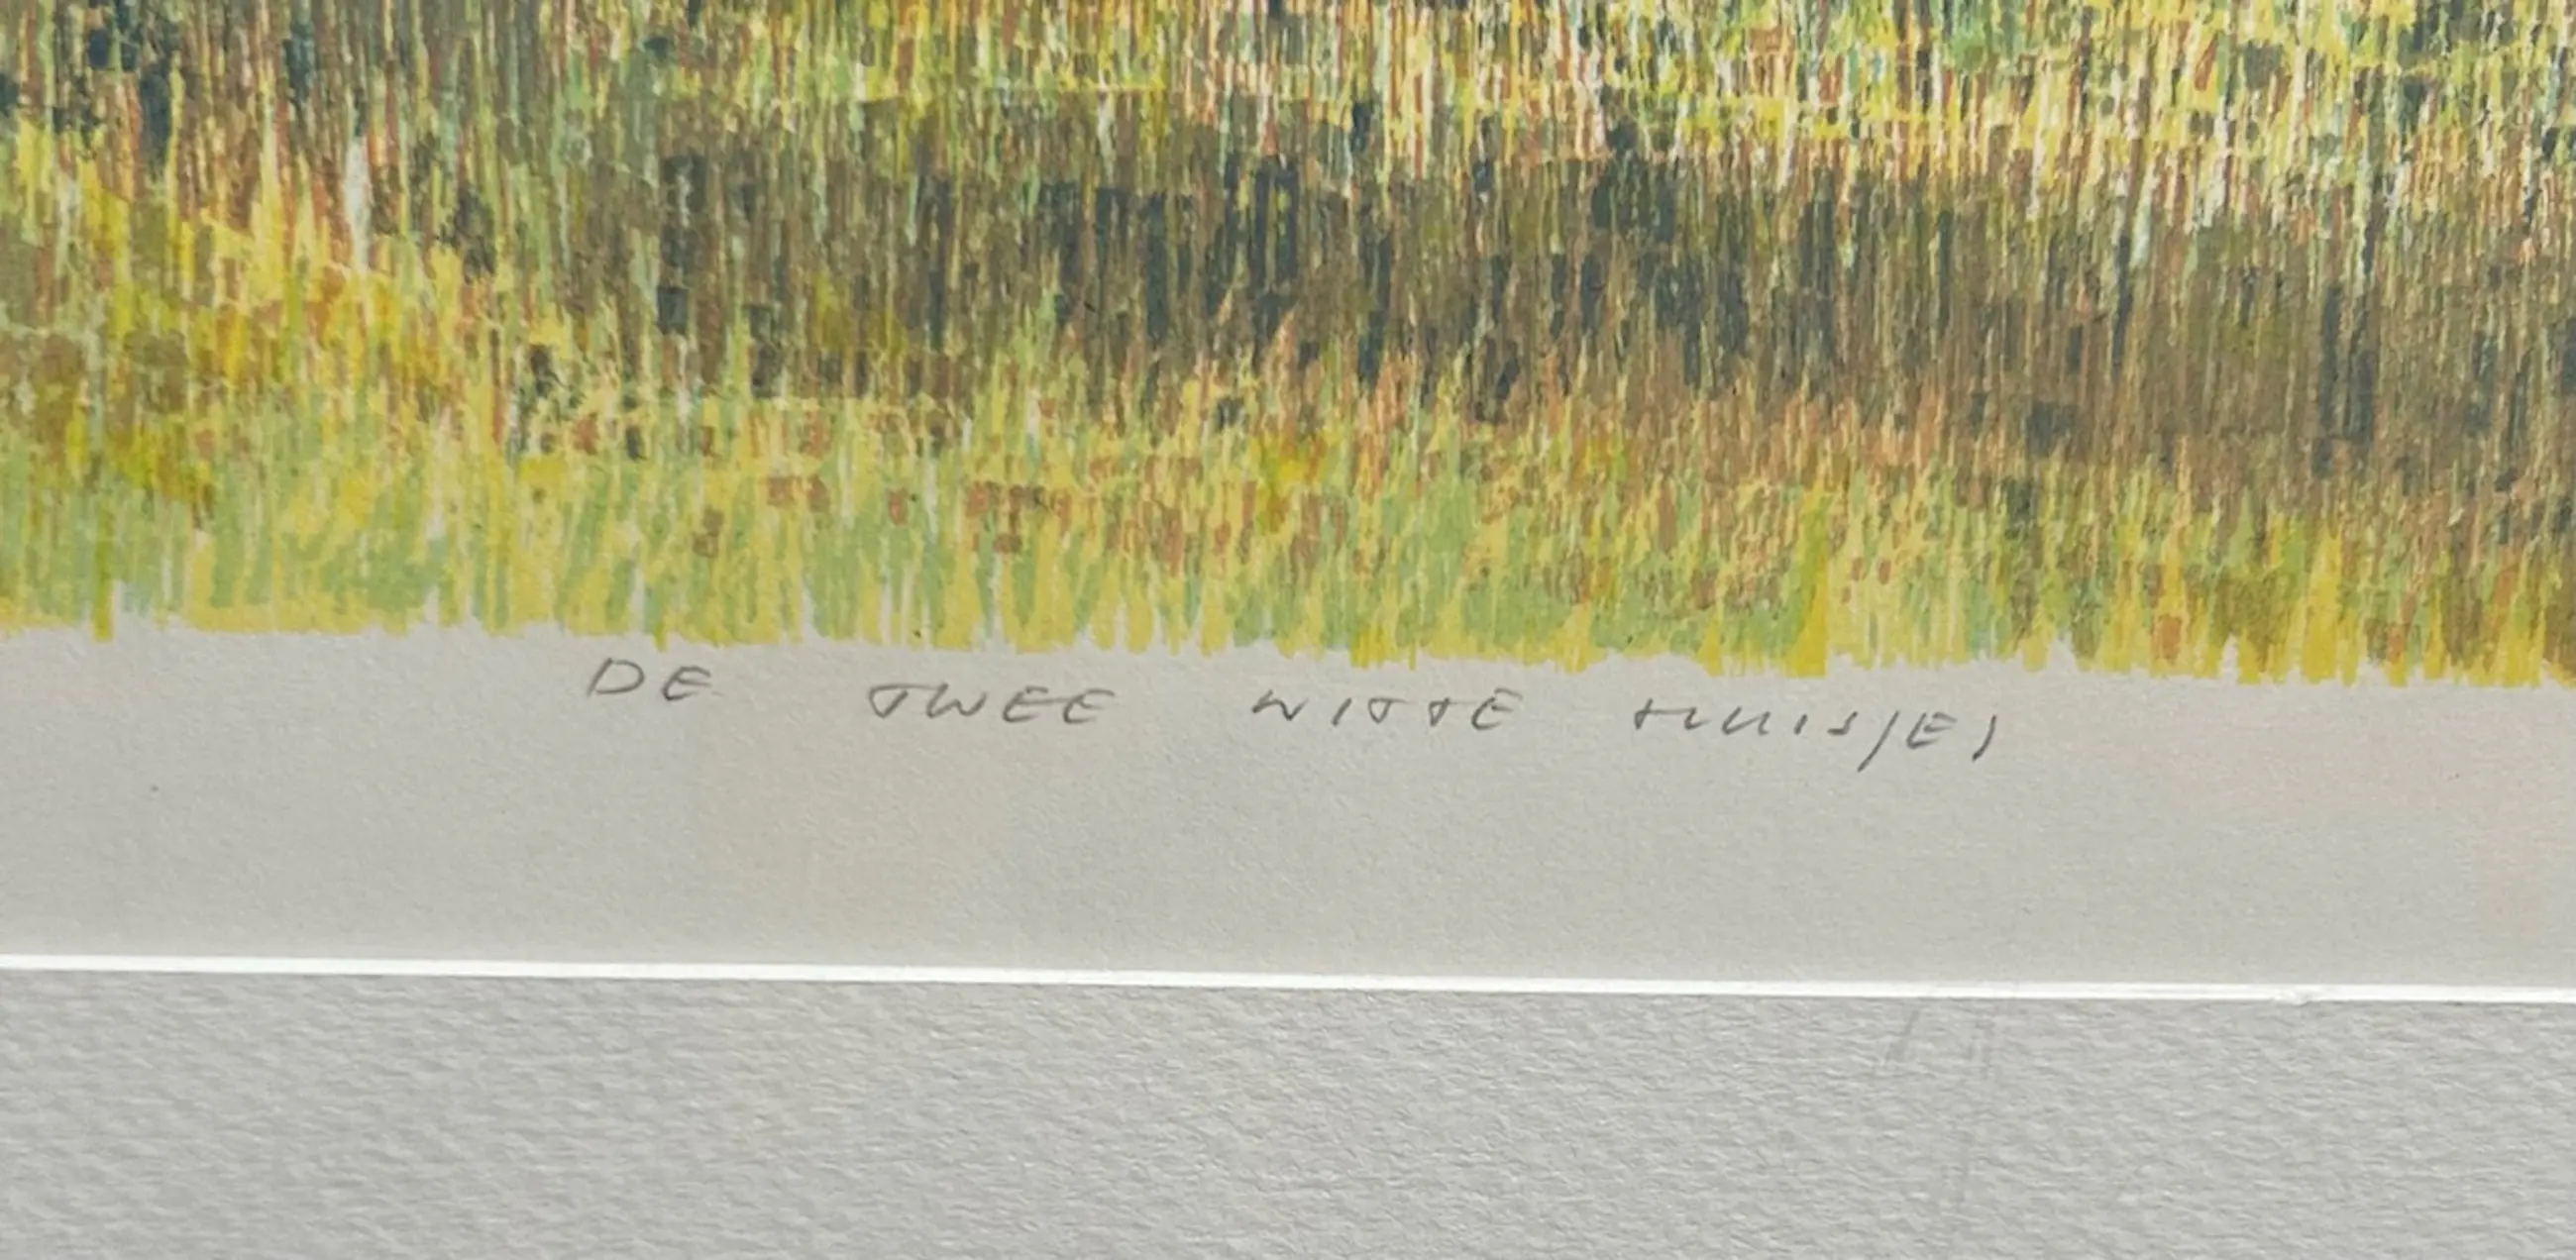 DE TWEE WITTE HUISJES